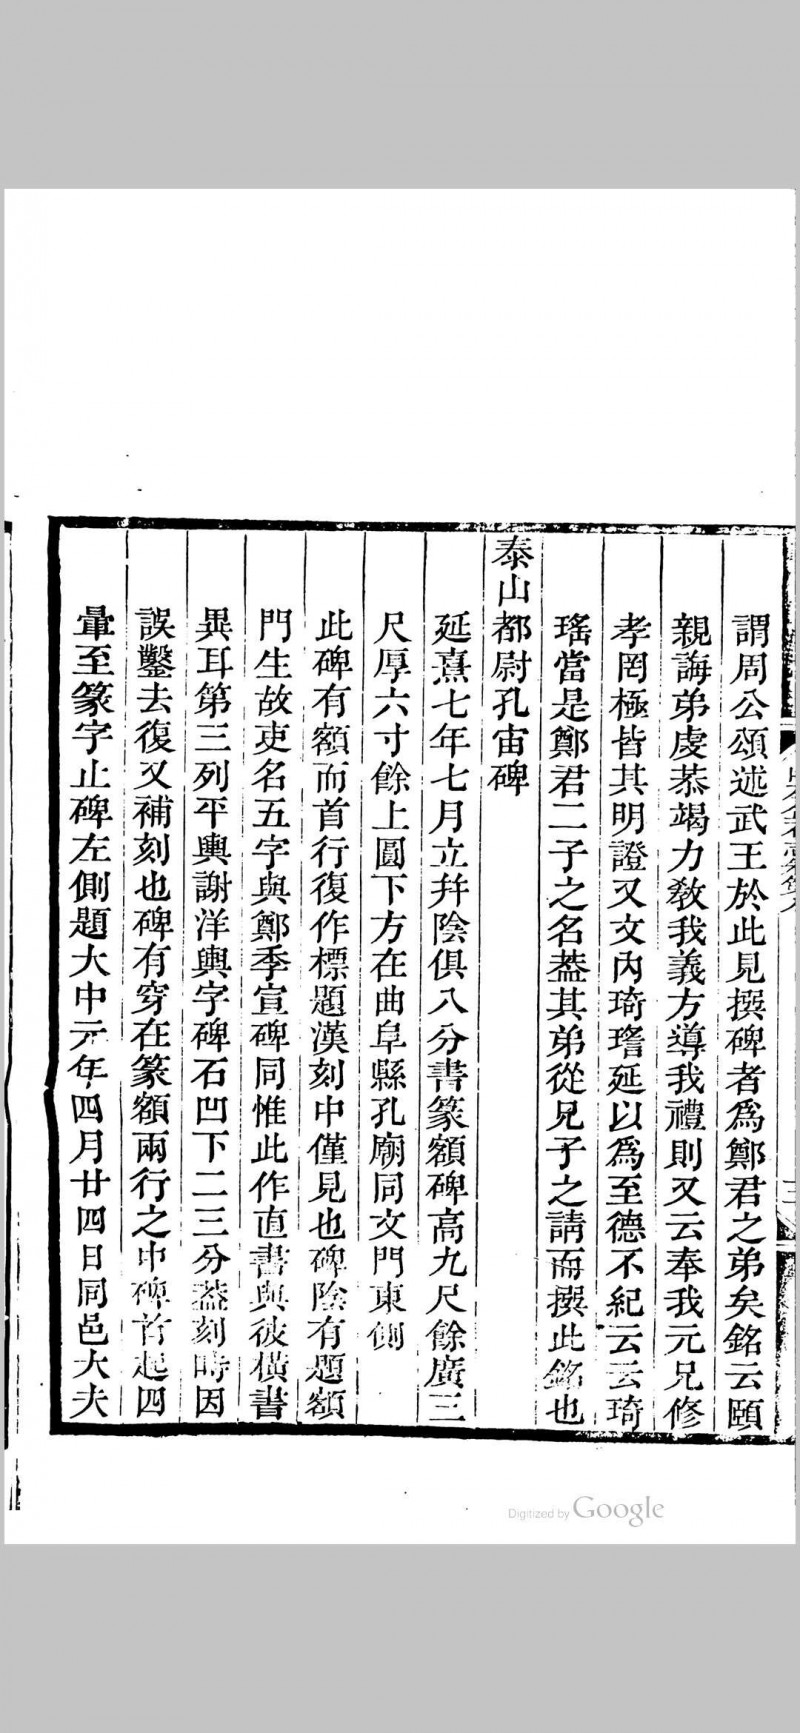 謂周公頌述武王於此見撰碑者爲鄭君之弟矣銘云頤
親誨弟虔恭竭力敎我義方導我禮則又云奉我元兄修
孝罔極皆其明證又文內琦瑤延以爲至德不紀云云琦
瑤當是鄭君二子之名葢其弟從兄子之請而撰此銘也
泰山都尉孔宙碑
延熹七年七月立幷陰俱八分書篆額碑高九尺餘廣三
尺厚六寸餘上圓下方在曲阜縣孔廟同文門東側
此碑有額而首行復作標題漢刻中僅見也碑陰有題額
門生故吏名五字與鄭季宣碑同惟此作直書與彼橫書
異耳第三列平輿謝洋輿字碑石凹下二三分葢刻時因
誤鑿去復又補刻也碑有穿在篆額兩行之中碑首起四
暈至篆字止碑左側題大中元年四月廿四日同邑大夫
Digitized by Google